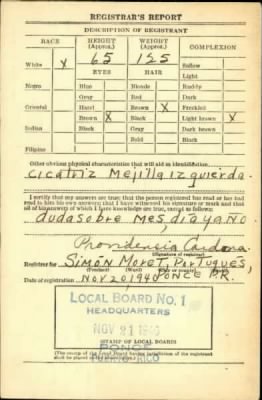 REGISTRAR'S REPORT
DESCRIPTION OF REGISTRANT
RACE HEIGHT (Approx.) WEIGHT (Approx.) COMPLEXION
White X 65 125 Sallow
EYES HAIR Light
Negro Blue Blonde Ruddy
Gray Red Dark
Oriental Hazel Brown X Freckled
Brown X Black Light brown X
Indian Black Gray Dark brown
Bald Black
Filipino
Other obvious physical characteristics that will aid in identification
Cicatriz Mejilla izquierda.
I certify that my answers are true; that the person registered has read or has had
read to him his own answers; that I have witnessed his signature or mark and that
all of his answers of which I have knowledge are true, except as follows:
dudasobre mes, dia y ano.
Providencia Cardona
(Signature of registrar)
Registrar for Simón Moret, Portugues,
(Precinct) (Ward) (City or county)
Date of registration Nov. 20 1940 PONCE P.R.
LOCAL BOARD No. 1
HEADQUARTERS
NOV 21 1940
STAMP OF LOCAL BOARD
PONCE
PUERTO RICO
(The stamp of the Local Board having jurisdiction of the registrant
shall be placed in the above space.)